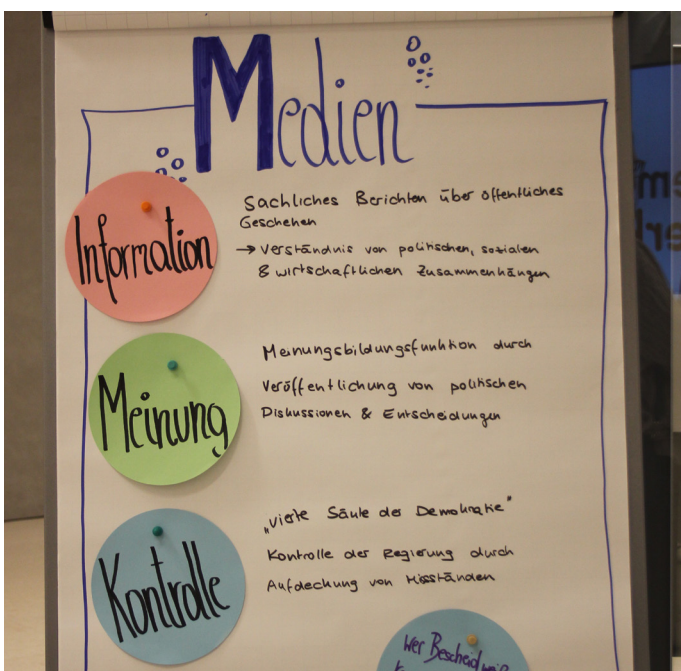 Medien
Information
Sachliches Berichten über öffentliches
Geschehen
→ Verständnis von politischen, sozialen
& wirtschaftlichen Zusammenhängen
Meinung
Meinungsbildungsfunktion durch
Veröffentlichung von politischen
Diskussionen & Entscheidungen
Kontrolle
„vierte Säule der Demokratie“
Kontrolle der Regierung durch
Aufdeckung von Missständen
Wer Bescheid weiß